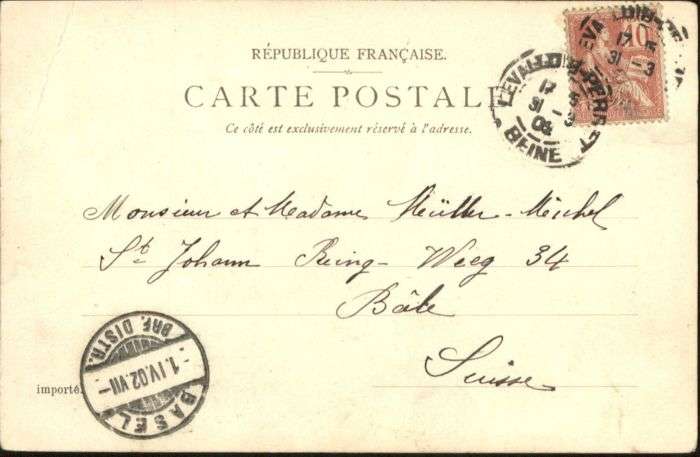 RÉPUBLIQUE FRANÇAISE.
CARTE POSTALE
Ce côté est exclusivement réservé à l'adresse.
10
LEVALLOIS-PERRET
17
31 - 3
LEVALLOIS-PERRET
17
31 - 3
02
SEINE
Monsieur et Madame Müller-Michel
St Johann Ring-Weg 34
Bâle
Suisse
BRF. DISTR.
-1.IV.02.VII-
BASEL
importé.